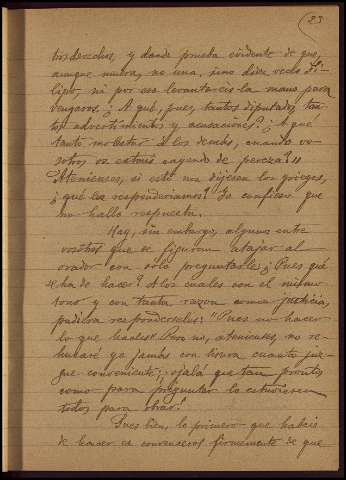 23
tros derechos, y dando prueba evidente de que,
aunque muera, no una, sino diez veces Fi-
lipo, ni por eso levantaréis la mano para
vengaros. ¿A qué, pues, tantos diputados, tan-
tas advertimientos y acusaciones? ¿A qué
tanto molestar á los demás, cuando vo-
sotros os estáis cayendo de pereza?"
Atenienses, si esto nos dijeran los griegos,
¿qué les responderíamos? Yo confieso que
no hallo respuesta.
Hay, sin embargo, algunos entre
vosotros que se figuran atajar al
orador con sólo preguntarle: ¿Pues qué
se ha de hacer? A los cuales con el mismo
tono y con tanta razon como justicia,
pudiera respondérseles: "Pues no hacer
lo que haceis." Pero no, atenienses, no re-
husaré yo jamás con honra cuanto juz-
gue conveniente; ¡ojalá que tan prontos
como para preguntar lo estuviesen
todos para obrar!
Pues bien, lo primero que habeis
de hacer es convenceros firmemente de que